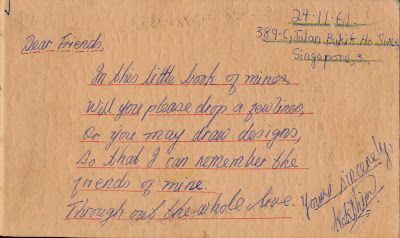 24.11.61.
389-C, Jalan Bukit Ho Swee
Singapore, 3.
Dear Friends,
In this little book of mines,
Will you please drop a few lines,
Or you may draw designs,
So that I can remember the
friends of mine.
Through out the whole live.
Yours sincerely,